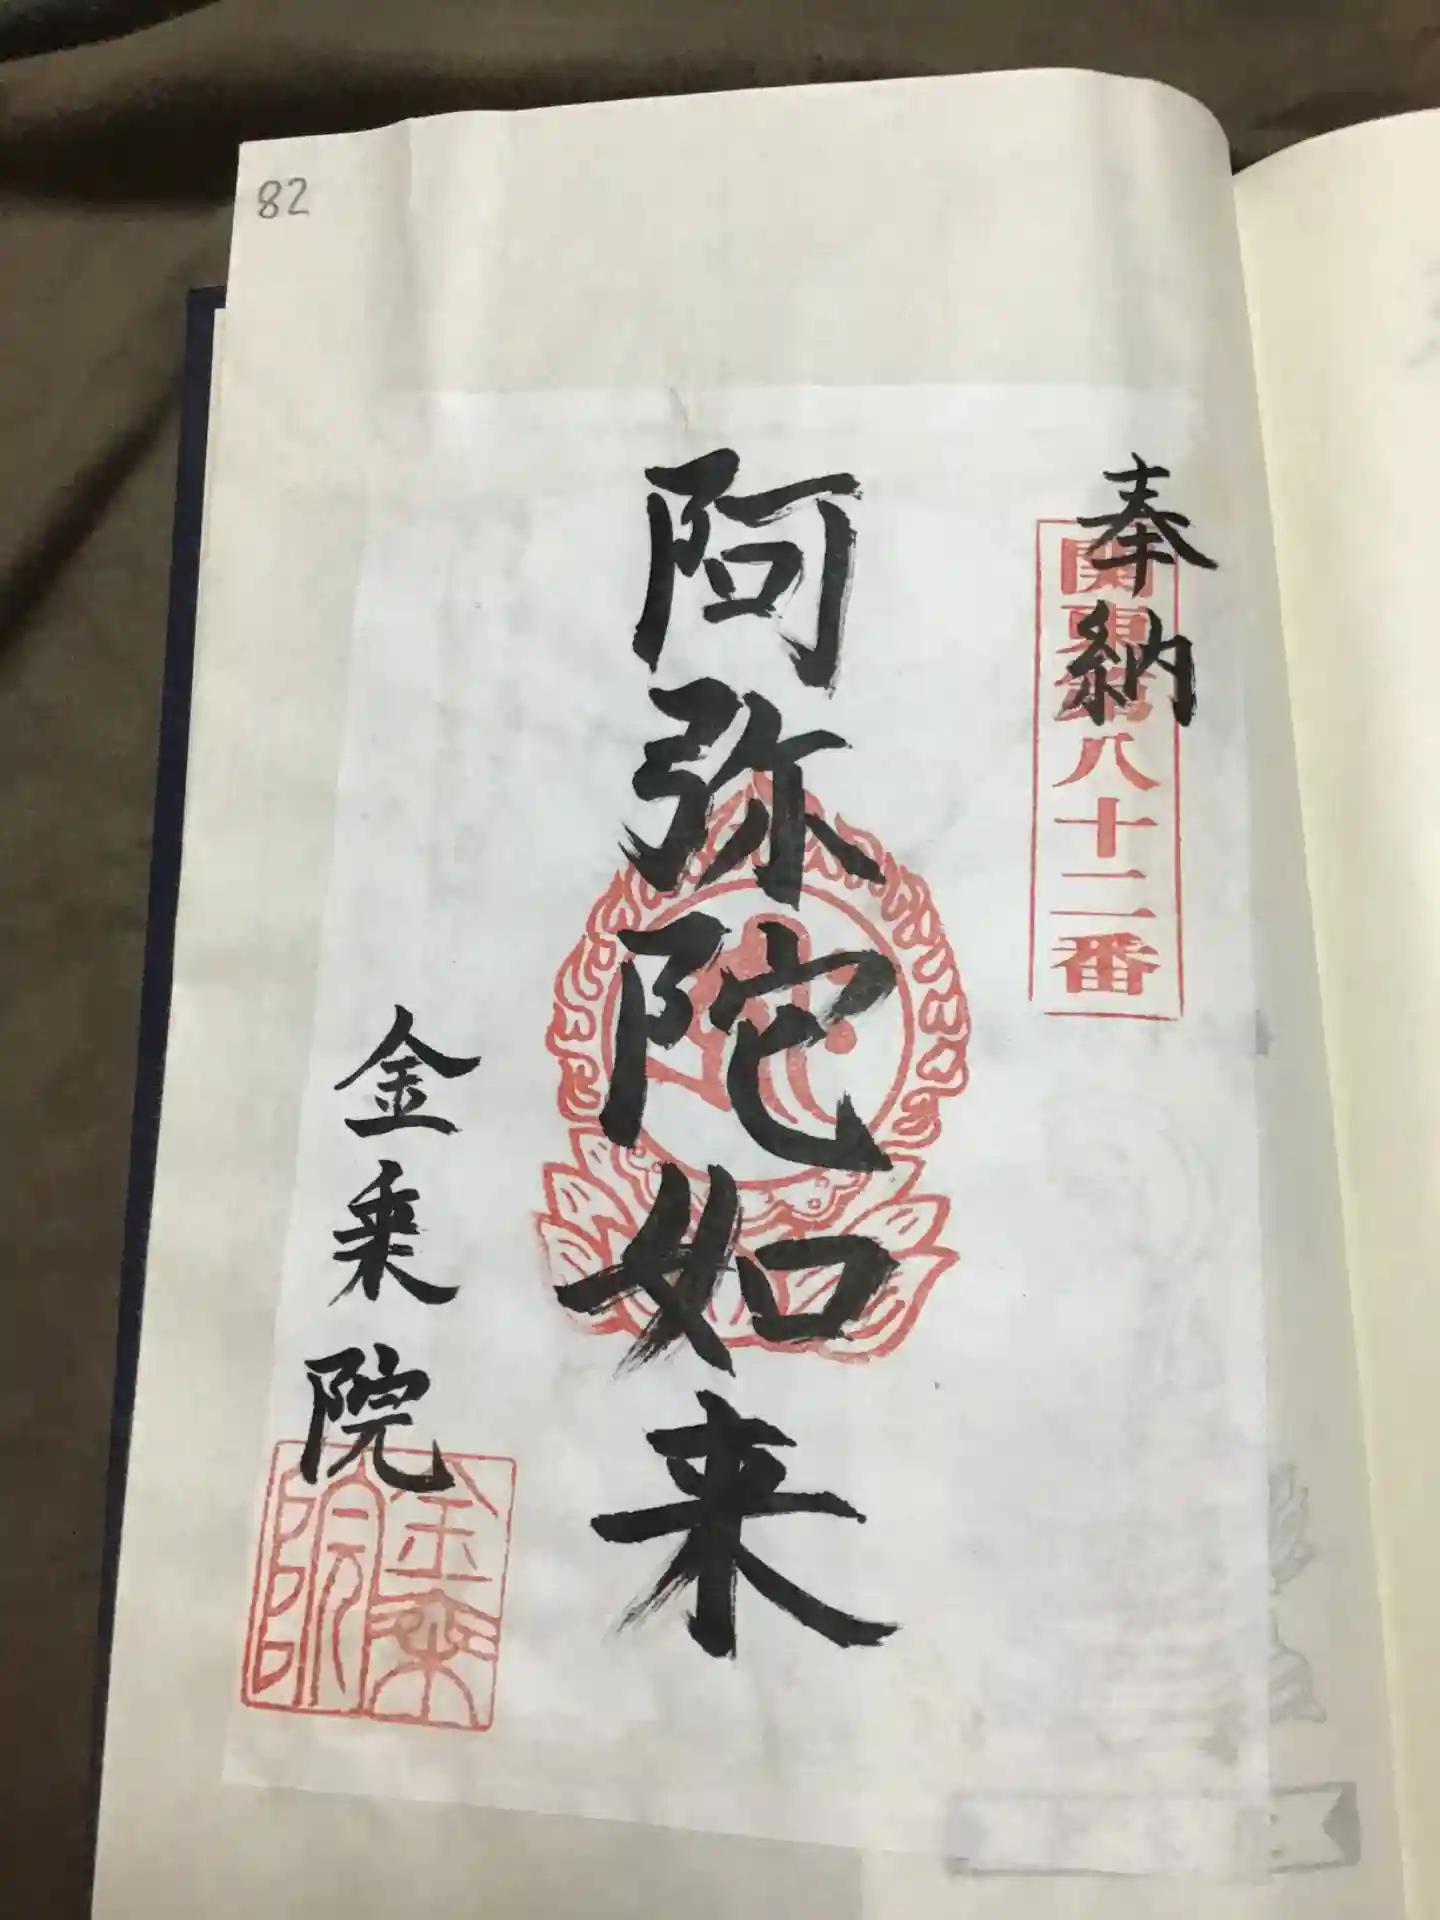 82
奉納
関東第八十二番
阿弥陀如来
金乗院
金乗院